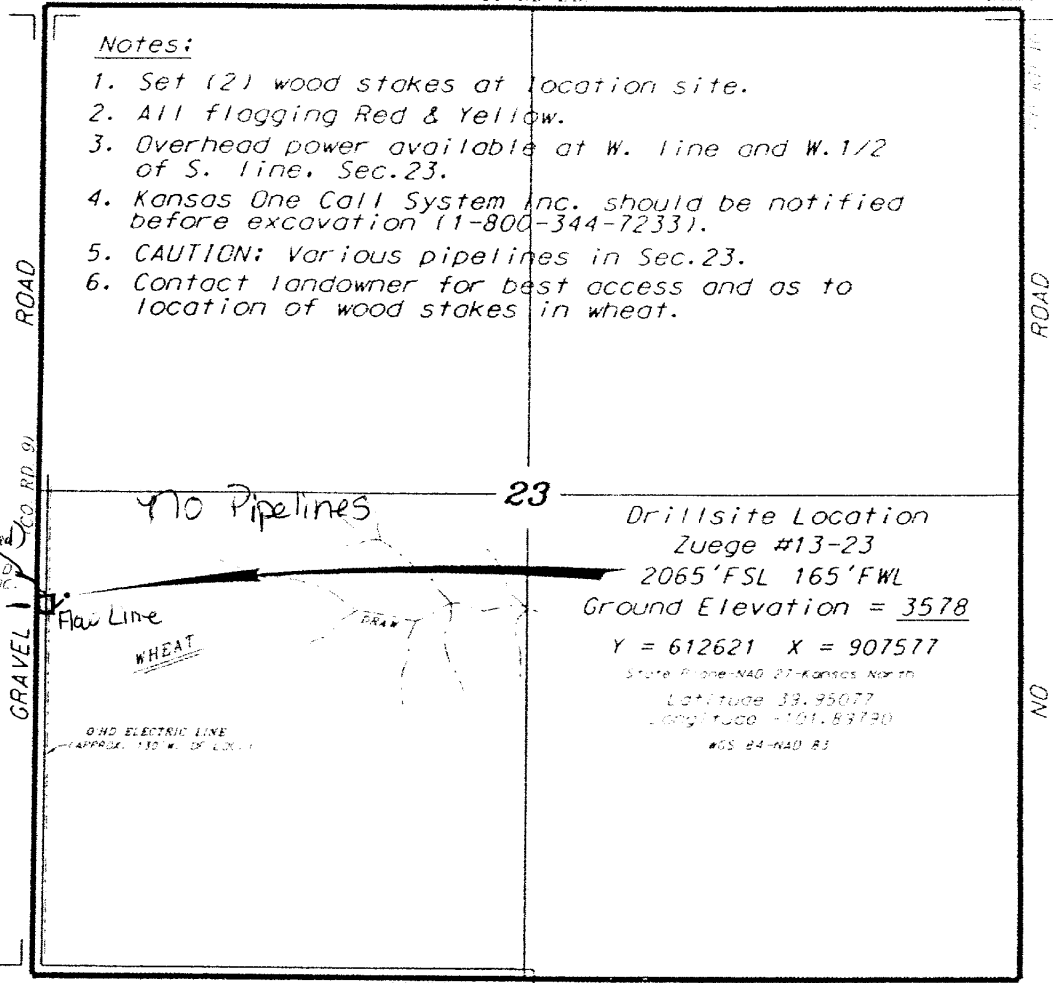 Notes:
1. Set (2) wood stakes at location site.
2. All flagging Red & Yellow.
3. Overhead power available at W. line and W.1/2
of S. line, Sec.23.
4. Kansas One Call System Inc. should be notified
before excavation (1-800-344-7233).
5. CAUTION: Various pipelines in Sec.23.
6. Contact landowner for best access and as to
location of wood stakes in wheat.
ROAD
ROAD
(CO RD 9)
No Pipelines
23
Drillsite Location
Zuege #13-23
2065'FSL 165'FWL
Ground Elevation = 3578
Y = 612621 X = 907577
State Plane-NAD 27-Kansas North
Latitude 39.95077
Longitude -101.89790
WGS 84-NAD 83
Flow Line
DRAW
WHEAT
GRAVEL
NO
OHD ELECTRIC LINE
(APPROX. 130' W. OF LOC.)